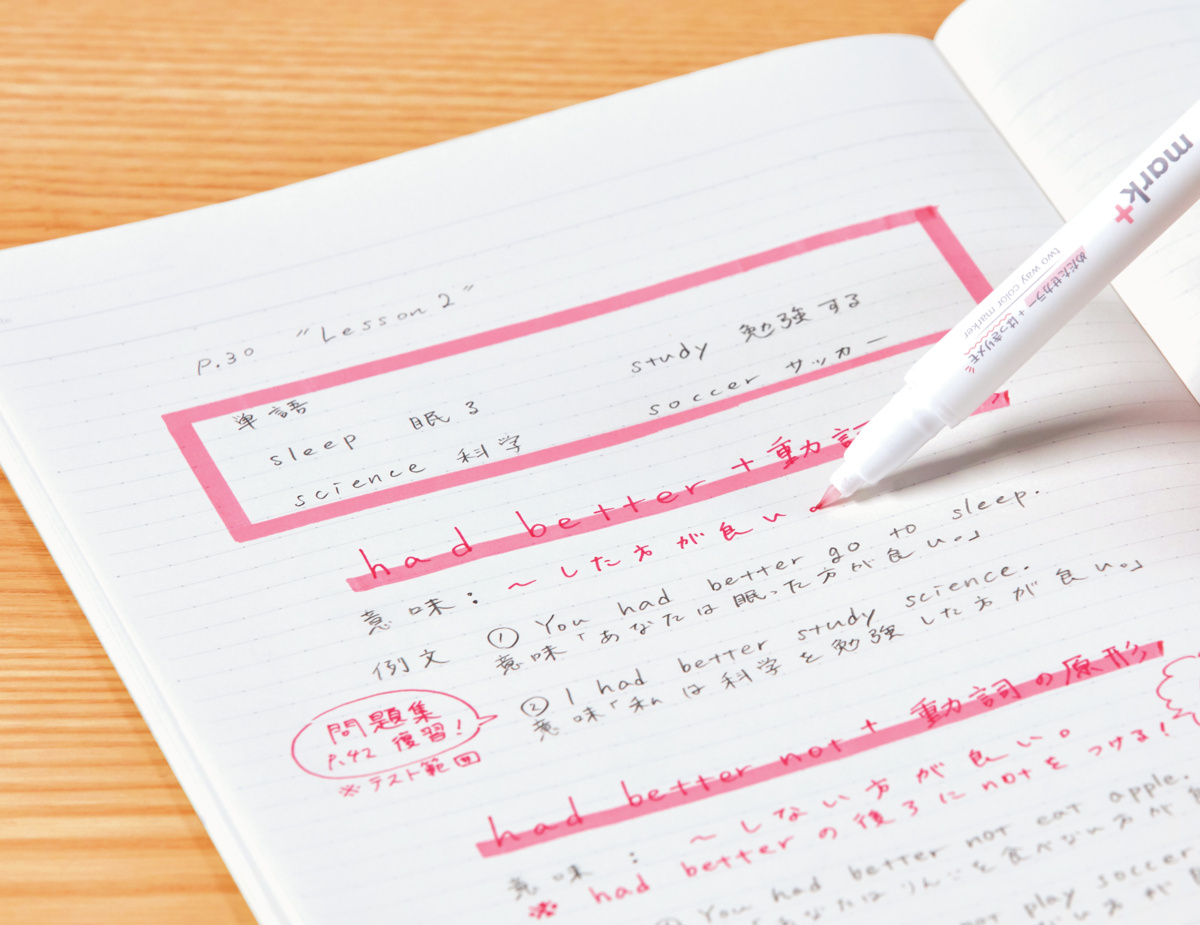 P.30 "Lesson 2"
単語
sleep 眠る
study 勉強する
science 科学
soccer サッカー
had better + 動詞
意味: ～した方が良い。
例文 ① You had better go to sleep.
意味「あなたは眠った方が良い。」
② I had better study science.
意味「私は科学を勉強した方が良い。」
問題集
P.42 復習!
※テスト範囲
had better not + 動詞の原形
意味: ～しない方が良い。
※ had better の後ろに not をつける!
You had better not eat apple.
あなたはりんごを食べない方が
not play soccer
ない方が
mark+
two way color marker
めだたせカラー + はっきりメモ